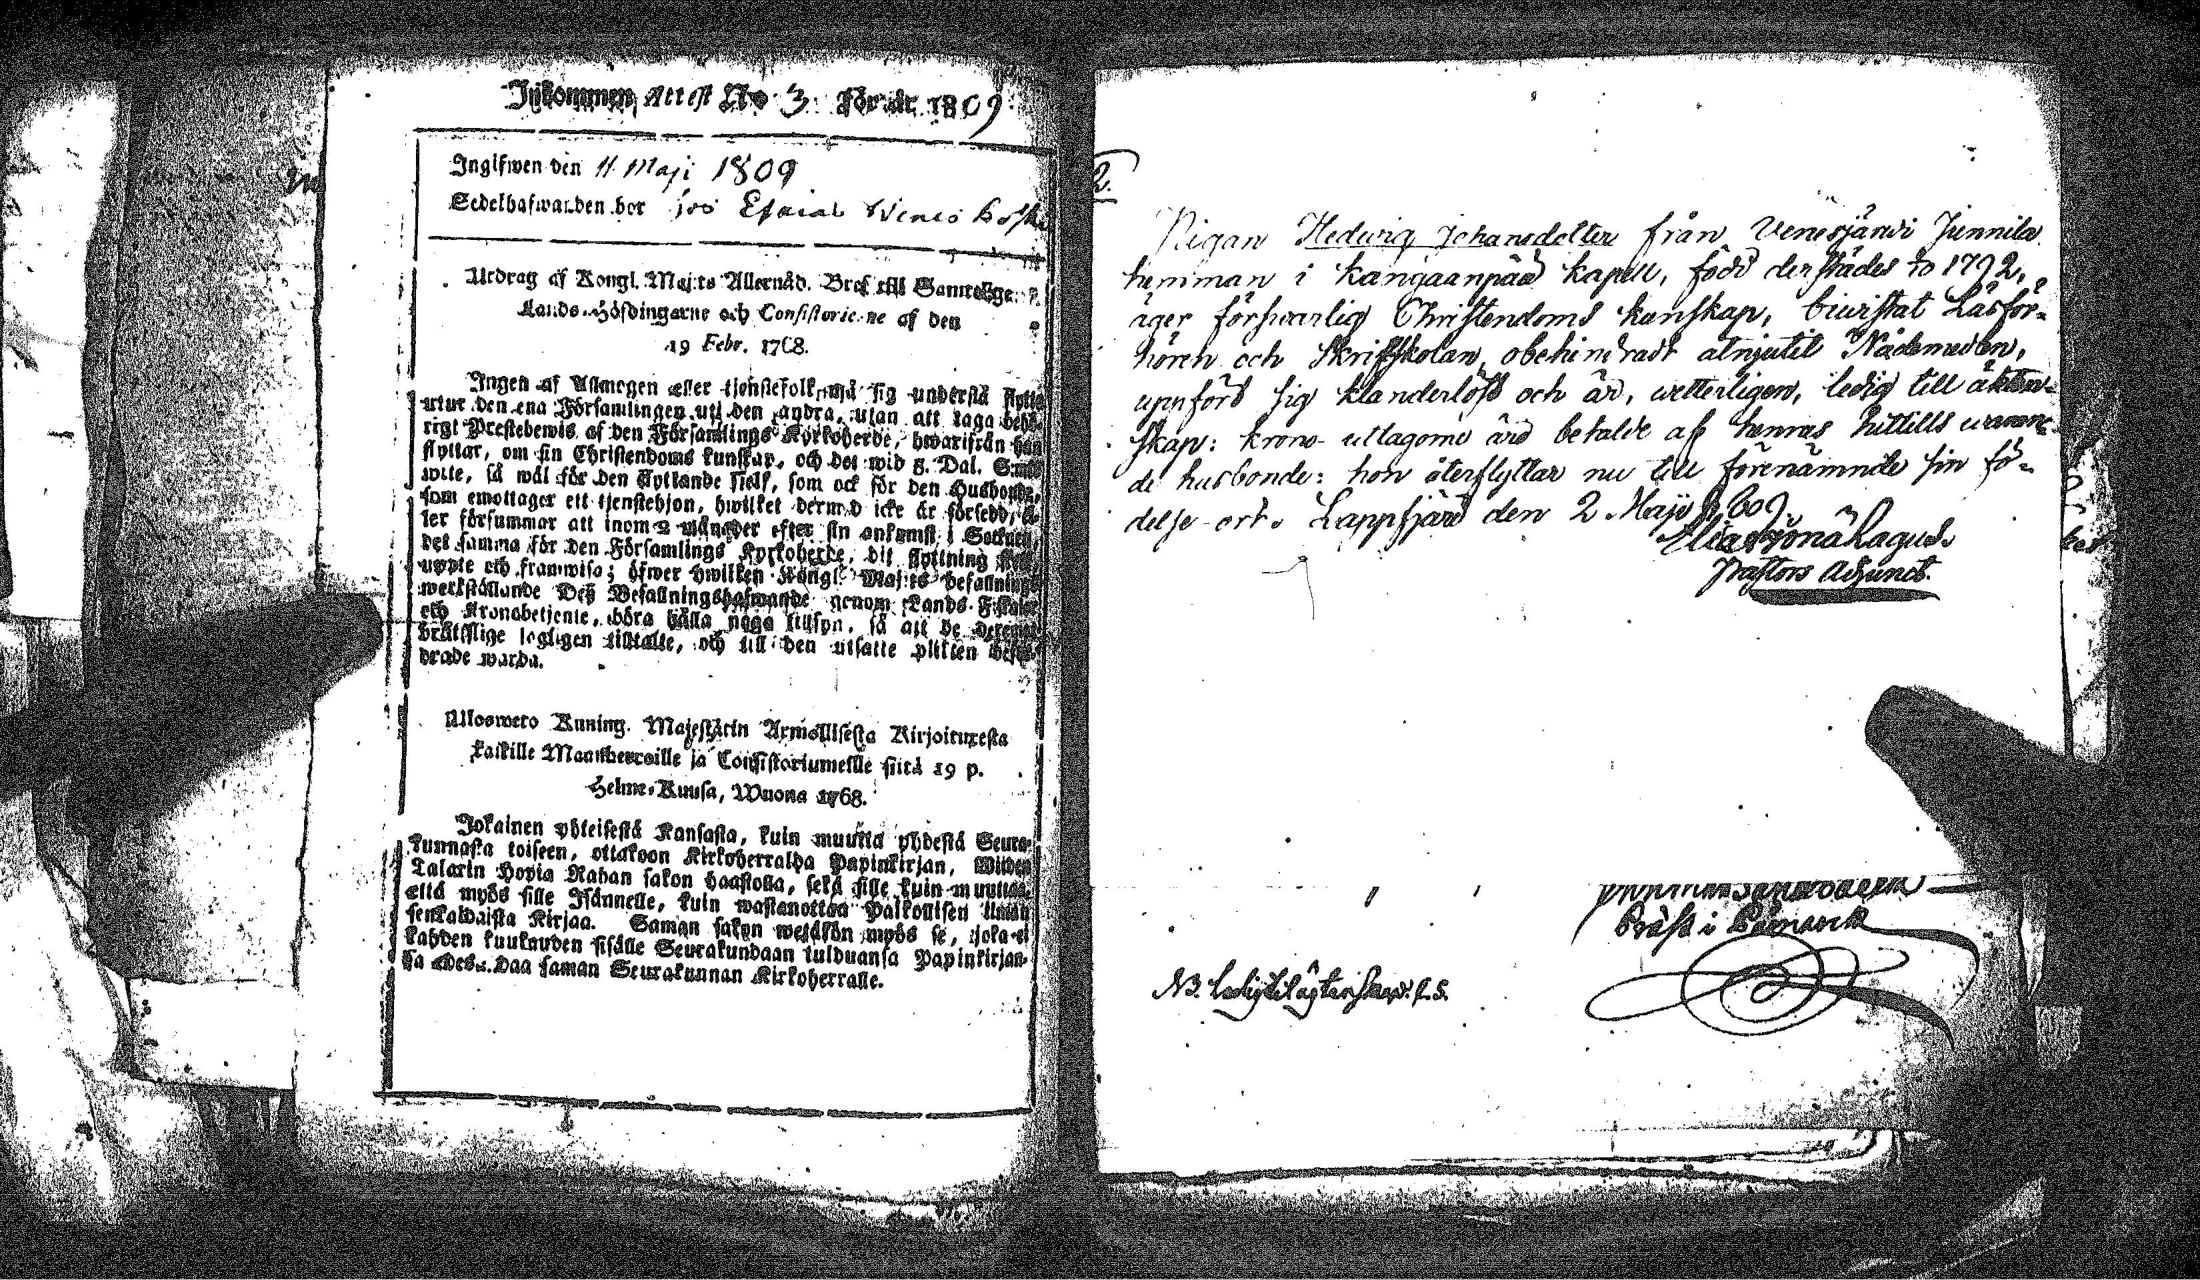 Inkommen Attest No 3. För år 1809
Ingifwen den 11 Maji 1809
Sedelhafwanden bor hos Esaias
Utdrag af Kongl. Maj:ts Allernåd. Bref till Samtelige
Lands-Höfdingarne och Consistorierne af den
19 Febr. 1768.
Ingen af Allmogen eller tjenstefolk, må sig understå flytta
utur den ena Församlingen uti den andra, utan att taga behö-
rigt Prestebewis af den Församlings Kyrkoherde, hwarifrån han
flyttar, om sin Christendoms kunskap, och det wid 5. Dal. S:mts
wite, så wäl för den flyttande sjelf, som ock för den Husbonde,
som emottager ett tjenstehjon, hwilket dermed icke är försedd, el-
ler försummar att inom 2 månader efter sin ankomst i Socknen,
det samma för den Församlings Kyrkoherde, dit flyttning skett,
uppte och framwisa; öfwer hwilken Kongl. Maj:ts befallnings
werkställande Dess Befallningshafwande genom Lands-Fiskaler
och Kronobetjente, böra hålla noga tillsyn, så att de deremot
bråtslige lagligen tilltalte, och till den utsatte plikten befor-
drade warda.
Ulosweto Kuning. Majestätin Armollisesta Kirjoituxesta
kaikille Maanherroille ja Consistoriumeille siitä 19 p.
Helme-Kuusa, Wuona 1768.
Jokainen yhteisestä Kansasta, kuin muutta yhdestä Seura-
kunnasta toiseen, ottakoon Kirkoherralda Papinkirjan, Wiiden
Talarin Hopia Rahan sakon haastolla, sekä sille kuin muuttaa,
että myös sille Isännelle, kuin wastanottaa Palkollisen ilman
senkaldaista Kirjaa. Saman sakon wetäkön myös se, joka ei
kahden kuukauden sisälle Seurakundaan tulduansa Papinkirjan-
sa edes. Daa saman Seurakunnan Kirkoherralle.
2.
Pigan Hedwig Johansdotter från Venesjärwi Junnila
hemman i Kangaanpää kapell, född derstädes to 1792,
äger förswarlig Christendoms kunskap, biwistat Läsför-
hören och Skriftskolan, obehindradt atnjutit Nådemedlen,
uppfört sig klanderlöst och är, wetterligen, ledig till äkten-
skap: krono-utlagorne äro betalde af hennes hittills waran-
de husbonde: hon återflyttar nu till förenämnde sin fö-
delse-ort. Lappfjärd den 2 Maji 1809.
Elias Jonä Lagus.
Pastors Adjunct.
Präst i Påmark
NB. ledig til ägtenskap. l. s.